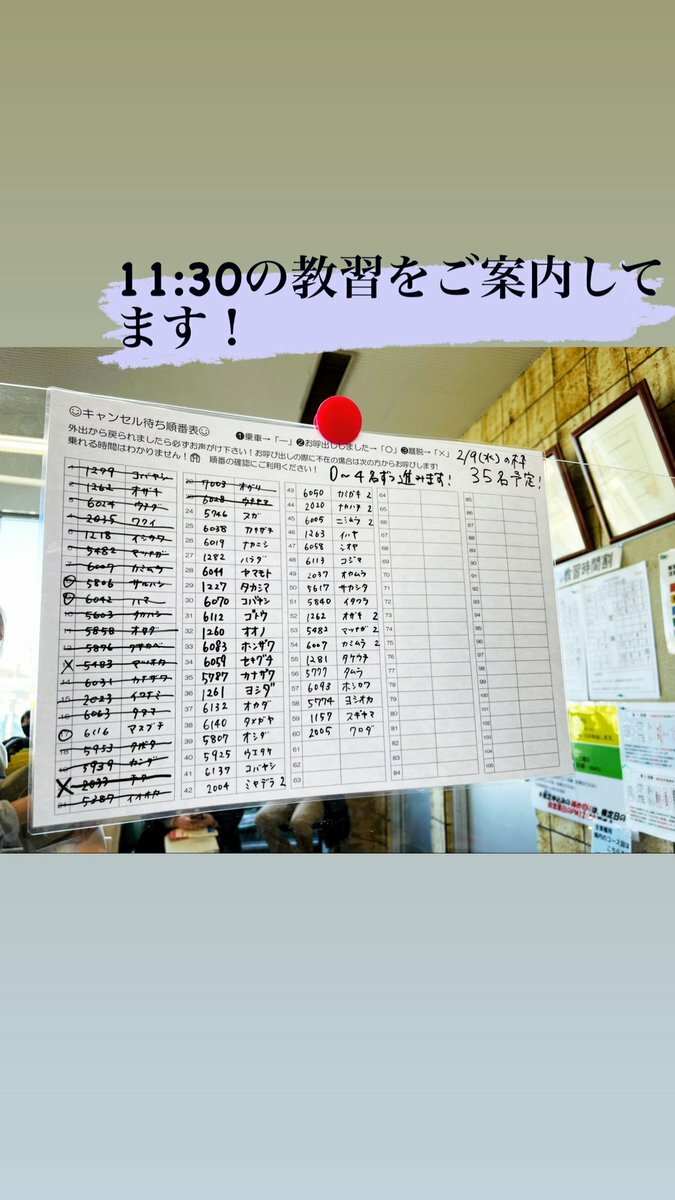 11:30の教習をご案内して
ます！
☺キャンセル待ち順番表☺
❶乗車→「―」❷お呼出ししました→「〇」❸離脱→「×」
外出から戻られましたら必ずお声がけ下さい！お呼び出しの際に不在の場合は次の方からお呼びします!
乗れる時間はわかりません！ 順番の確認にご利用ください！
0～4名ずつ進みます!
2/9(水)の枠
35名予定!
1299 コバヤシ
1262 オザキ
6024
2035 ワクイ
1218 イシカワ
5482 マツナガ
6007 カミムラ
5806 サルハシ
6042 ハマー
5603 タカハシ
5858 オタダ
5896 クサカベ
5483 マツオカ
6031 カナザワ
2023
6063 タヌマ
17 6116 マスブチ
5953 クボタ
5939 カンダ
2033
5387 イイオカ
22 7003 オグリ
6028
24 5746 スガ
25 6038 カキガチ
26 6019 ナカニシ
27 1282 ハラダ
28 6044 ヤマモト
29 1227 タカシマ
30 6070 コバヤシ
31 6112 ゴトウ
32 1260 オオノ
33 6083 ホンザワ
34 6059 セグチ
35 5787 カナザワ
36 1261 ヨシダ
37 6132 オカダ
38 6140 タメガヤ
39 5807 オシダ
40 5925 ウエタケ
41 6137 コバヤシ
42 2004 ミヤデラ 2
43 6050 カミガキ 2
44 2020 ナカハチ 2
45 6005 ニシムラ 2
46 1263 イハヤ
47 6058 シオヤ
48 6113 コジマ
49 2037 オヤムラ
50 5617 サカシタ
51 5840 イタクラ
52 1262 オザキ 2
53 5482 マツナガ 2
54 6007 カミムラ 2
55 1281 タケウチ
56 5777 タムラ
57 6093 ホシカワ
58 5774 ヨシオカ
59 1157 スギヤマ
60 2005 クロダ
61
62
63
64
65
66
67
68
69
70
71
72
73
74
75
76
77
78
79
80
81
82
83
84
85
86
87
88
89
90
91
92
93
94
95
96
97
98
99
100
101
102
103
104
105
教習時間割